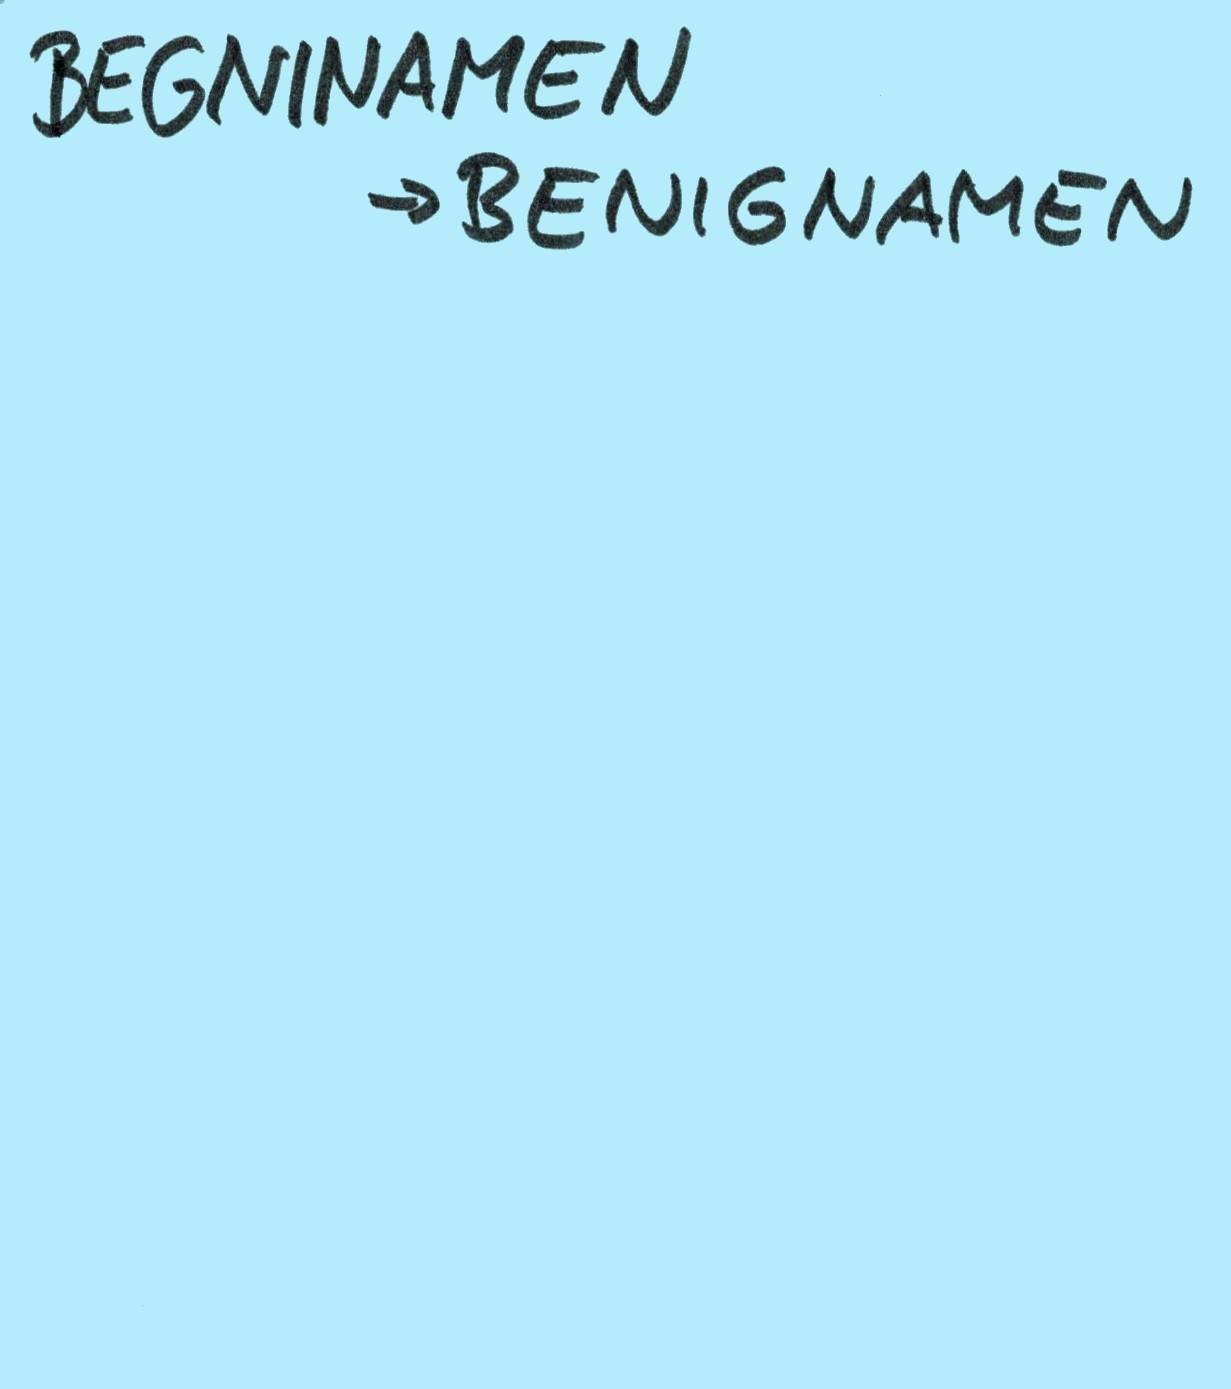 BEGNINAMEN
→ BENIGNAMEN